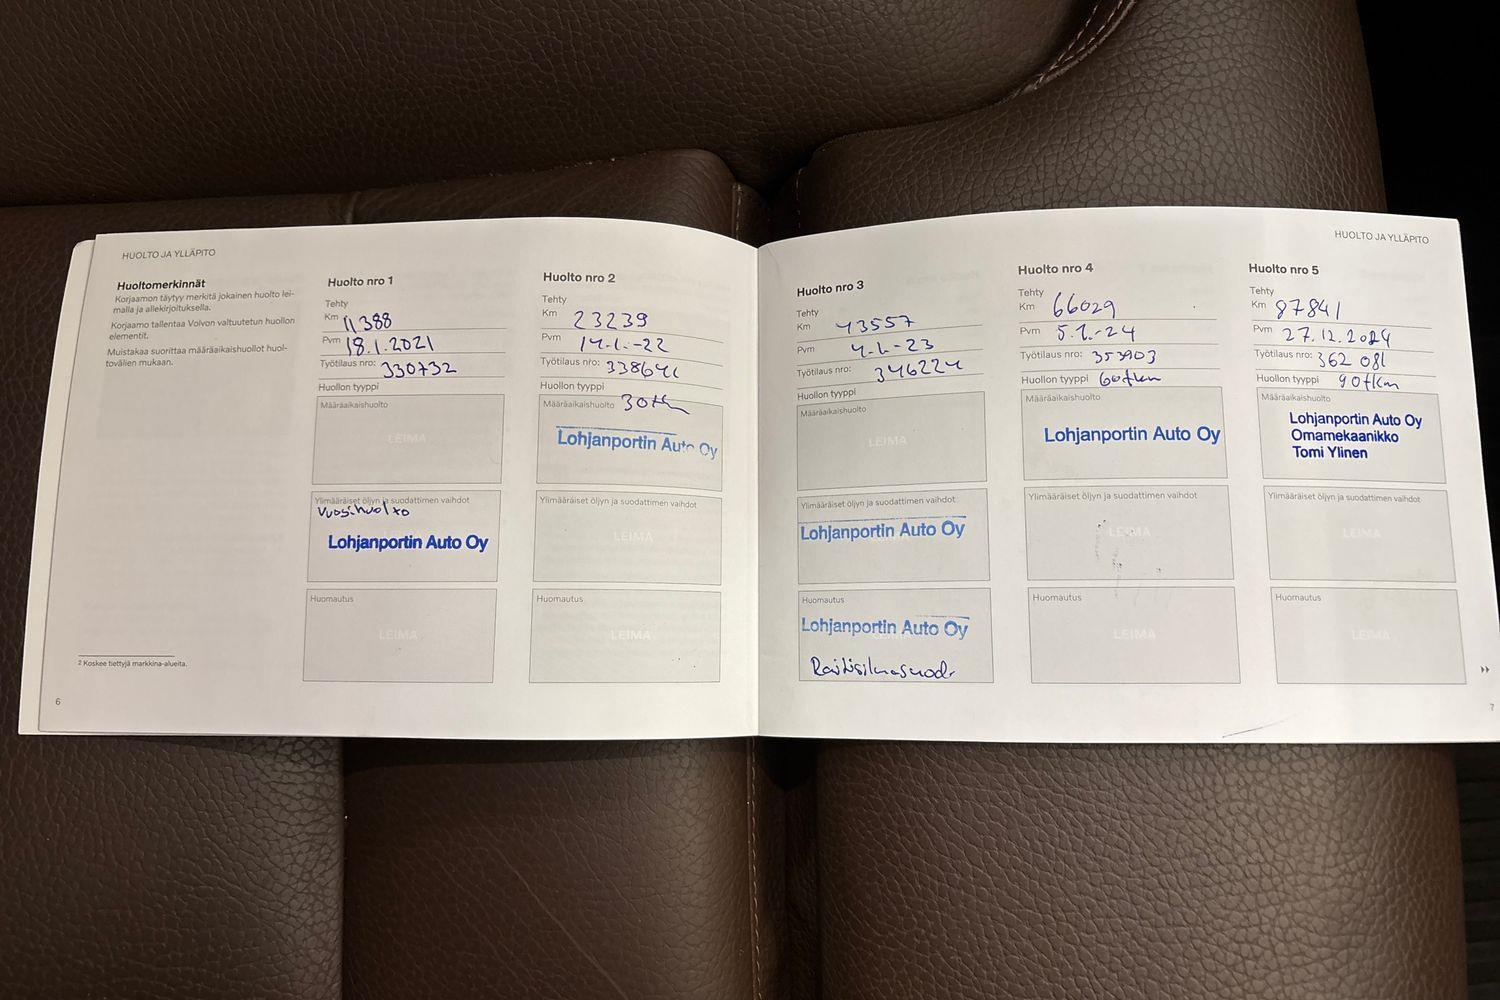 HUOLTO JA YLLÄPITO
Huoltomerkinnät
Korjaamon täytyy merkitä jokainen huolto lei-
malla ja allekirjoituksella.
Korjaamo tallentaa Volvon valtuutetun huollon
elementit.
Muistakaa suorittaa määräaikaishuollot huol-
tovälien mukaan.
2 Koskee tiettyjä markkina-alueita.
6
Huolto nro 1
Tehty
Km 11388
Pvm 18.1.2021
Työtilaus nro: 330732
Huollon tyyppi
Määräaikaishuolto
LEIMA
Ylimääräiset öljyn ja suodattimen vaihdot
Vuosihuolto
Lohjanportin Auto Oy
Huomautus
LEIMA
Huolto nro 2
Tehty
Km 23239
Pvm 14.1.-22
Työtilaus nro: 338641
Huollon tyyppi
Määräaikaishuolto 30tkm
Lohjanportin Auto Oy
Ylimääräiset öljyn ja suodattimen vaihdot
LEIMA
Huomautus
LEIMA
HUOLTO JA YLLÄPITO
Huolto nro 3
Tehty
Km 43557
Pvm 4.1.-23
Työtilaus nro: 346224
Huollon tyyppi
Määräaikaishuolto
LEIMA
Ylimääräiset öljyn ja suodattimen vaihdot
Lohjanportin Auto Oy
Huomautus
Lohjanportin Auto Oy
Raitisilmasuod.
Huolto nro 4
Tehty
Km 66029
Pvm 5.1.-24
Työtilaus nro: 353903
Huollon tyyppi 60tkm
Määräaikaishuolto
Lohjanportin Auto Oy
Ylimääräiset öljyn ja suodattimen vaihdot
LEIMA
Huomautus
LEIMA
Huolto nro 5
Tehty
Km 87841
Pvm 27.12.2024
Työtilaus nro: 362081
Huollon tyyppi 90tkm
Määräaikaishuolto
Lohjanportin Auto Oy
Omamekaanikko
Tomi Ylinen
Ylimääräiset öljyn ja suodattimen vaihdot
LEIMA
Huomautus
LEIMA
7